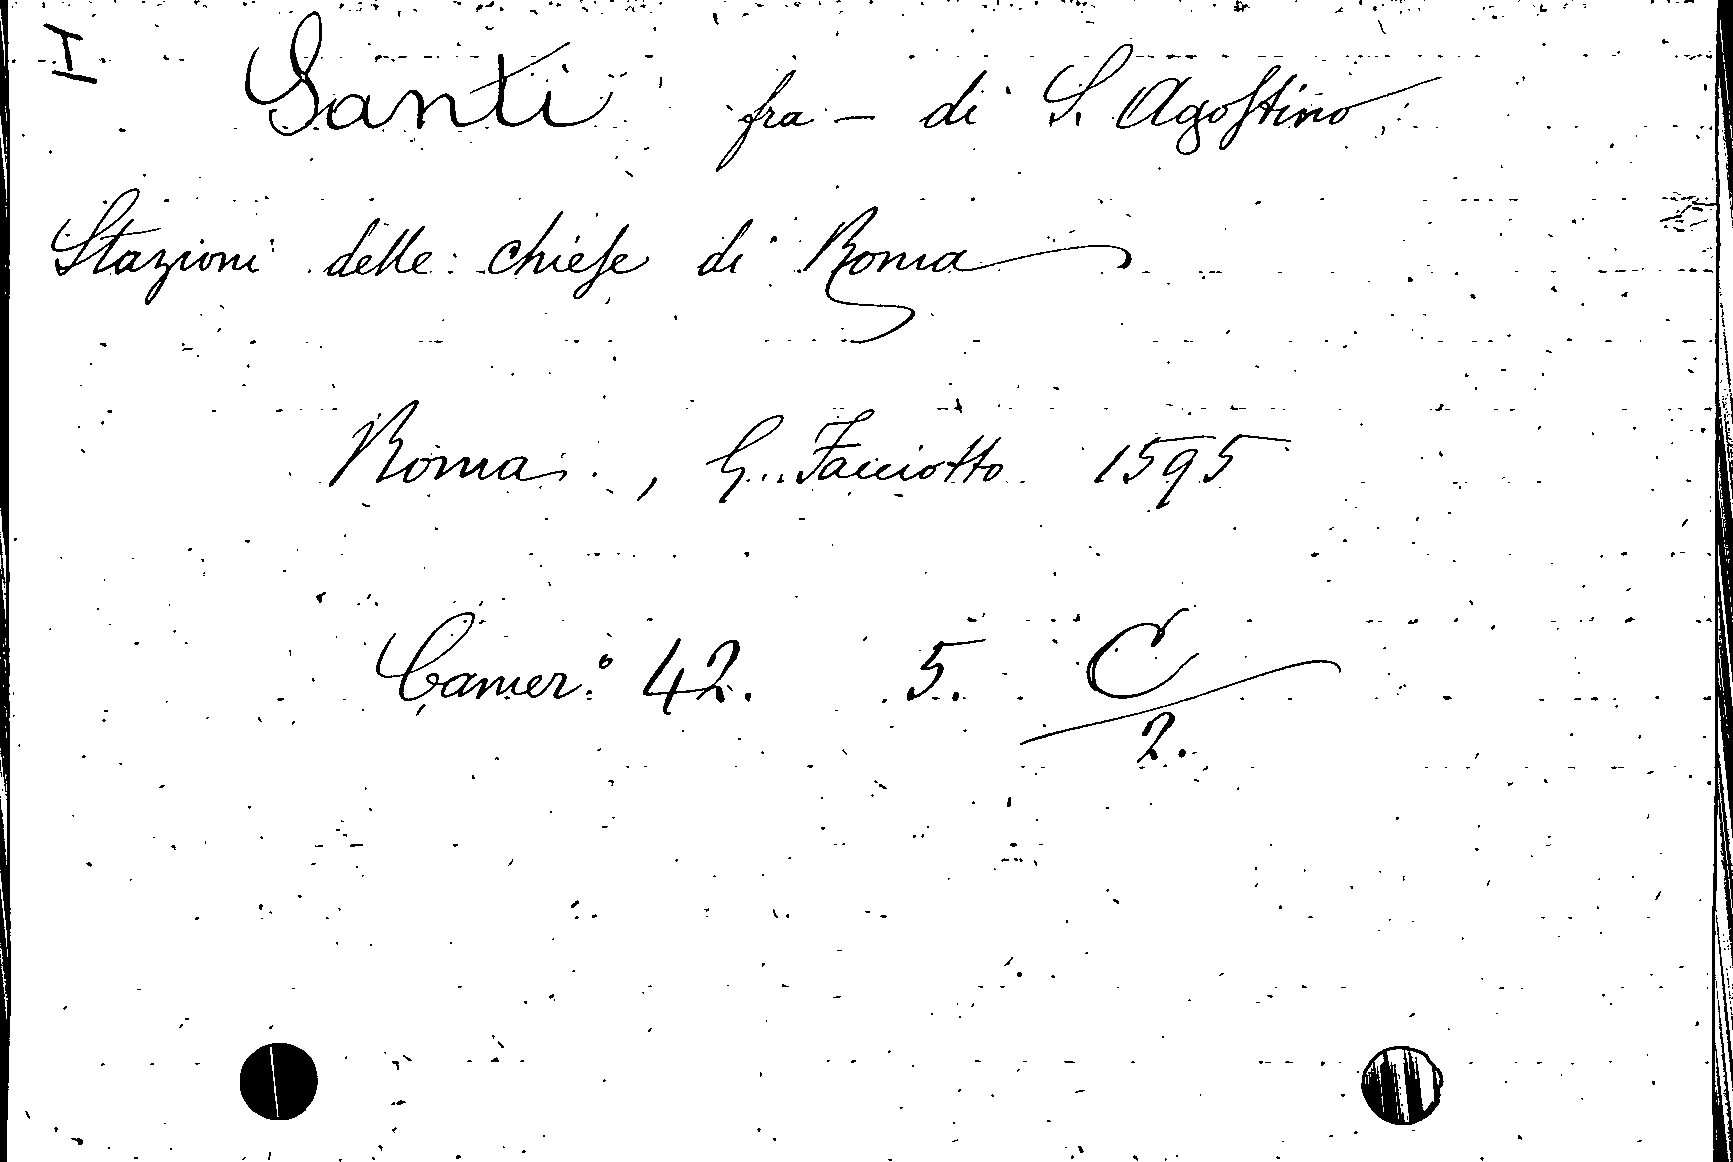 I
Santi fra - di S. Agostino
Stazioni delle chiese di Roma
Roma, G. Facciotto 1595
Camer.° 42. 5. C
2.